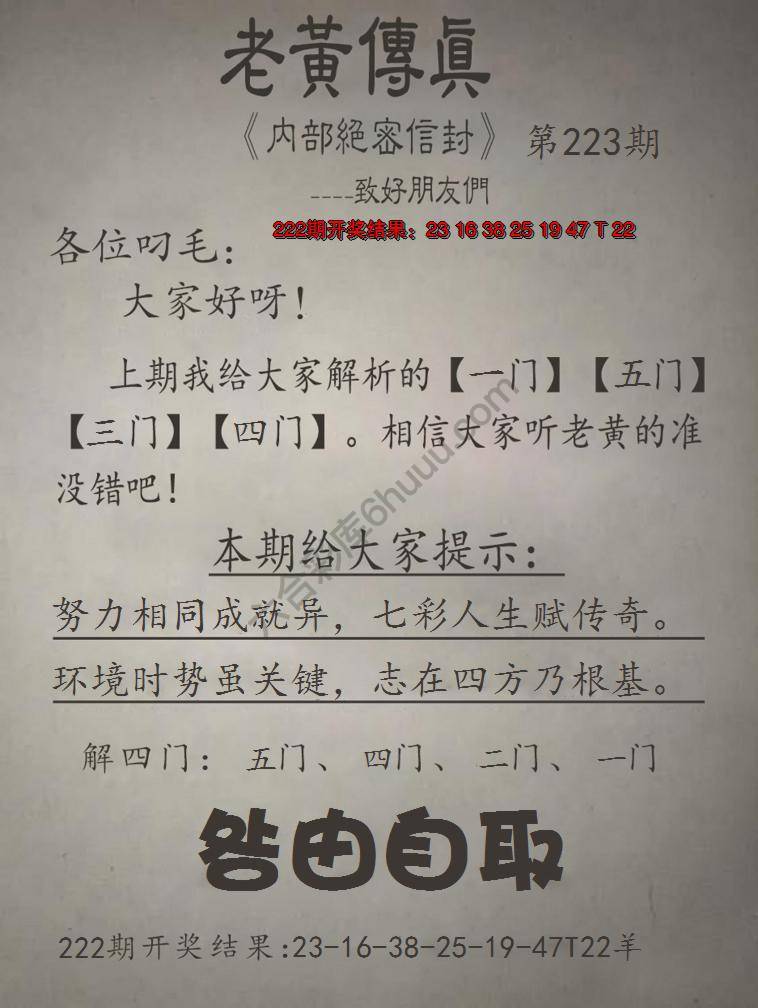 老黃傳眞
《内部絕密信封》 第223期
----致好朋友們
222期开奖结果：23 16 38 25 19 47 T 22
各位叼毛：
大家好呀！
上期我给大家解析的【一门】【五门】
【三门】【四门】。相信大家听老黄的准
没错吧！
本期给大家提示：
努力相同成就异，七彩人生赋传奇。
环境时势虽关键，志在四方乃根基。
解四门：五门、四门、二门、一门
咎由自取
222期开奖结果:23-16-38-25-19-47T22羊
六合彩库6huuu.com